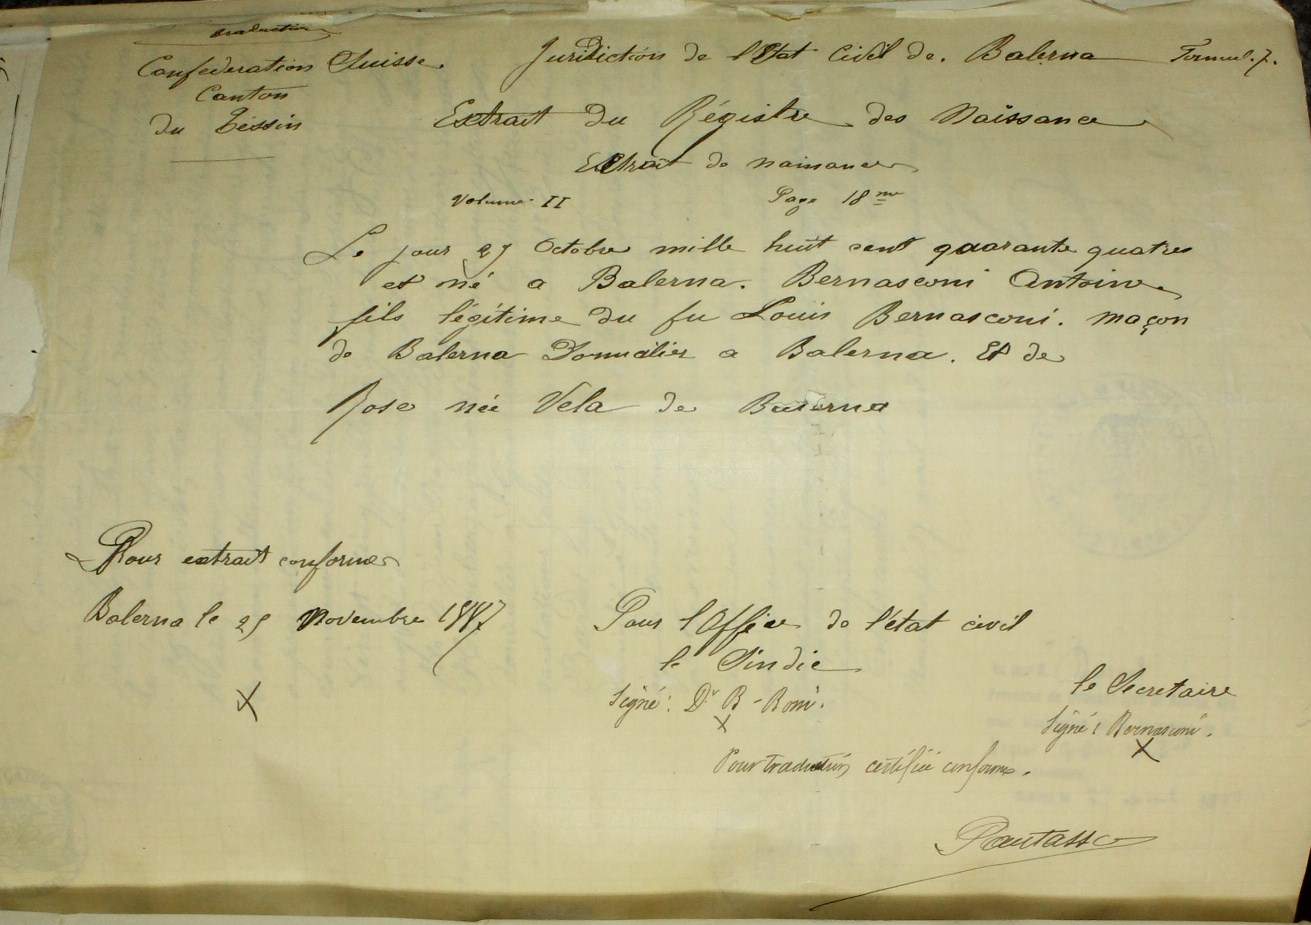 Traduction
Confederation Suisse. Juridiction de l'Etat Civil de. Balerna Formul. 7.
Canton
du Tessin
Extrait du Régistre des Naissance
Extrait de naissance
Volume II Page 18 me
Le jour 27 Octobre mille huit cent quarante quatres
et né a Balerna. Bernasconi Antoine
fils légitime du fu Louis Bernasconi. maçon
de Balerna Domicilier a Balerna. Et de
Rose née Vela de Balerna
Pour extrait conforme
Balerna le 25 Novembre 1887
Pour l'Office de l'état civil
le Sindic
Signé: Dr B - Boni.
le Secretaire
Signé: Bernasconi.
Pour traduction certifiée conforme.